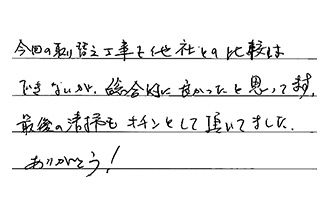 今回の取り替え工事を他社との比較は
できないが、総合的に良かったと思ってます。
最後の清掃もキチンとして頂いてました。
ありがとう!